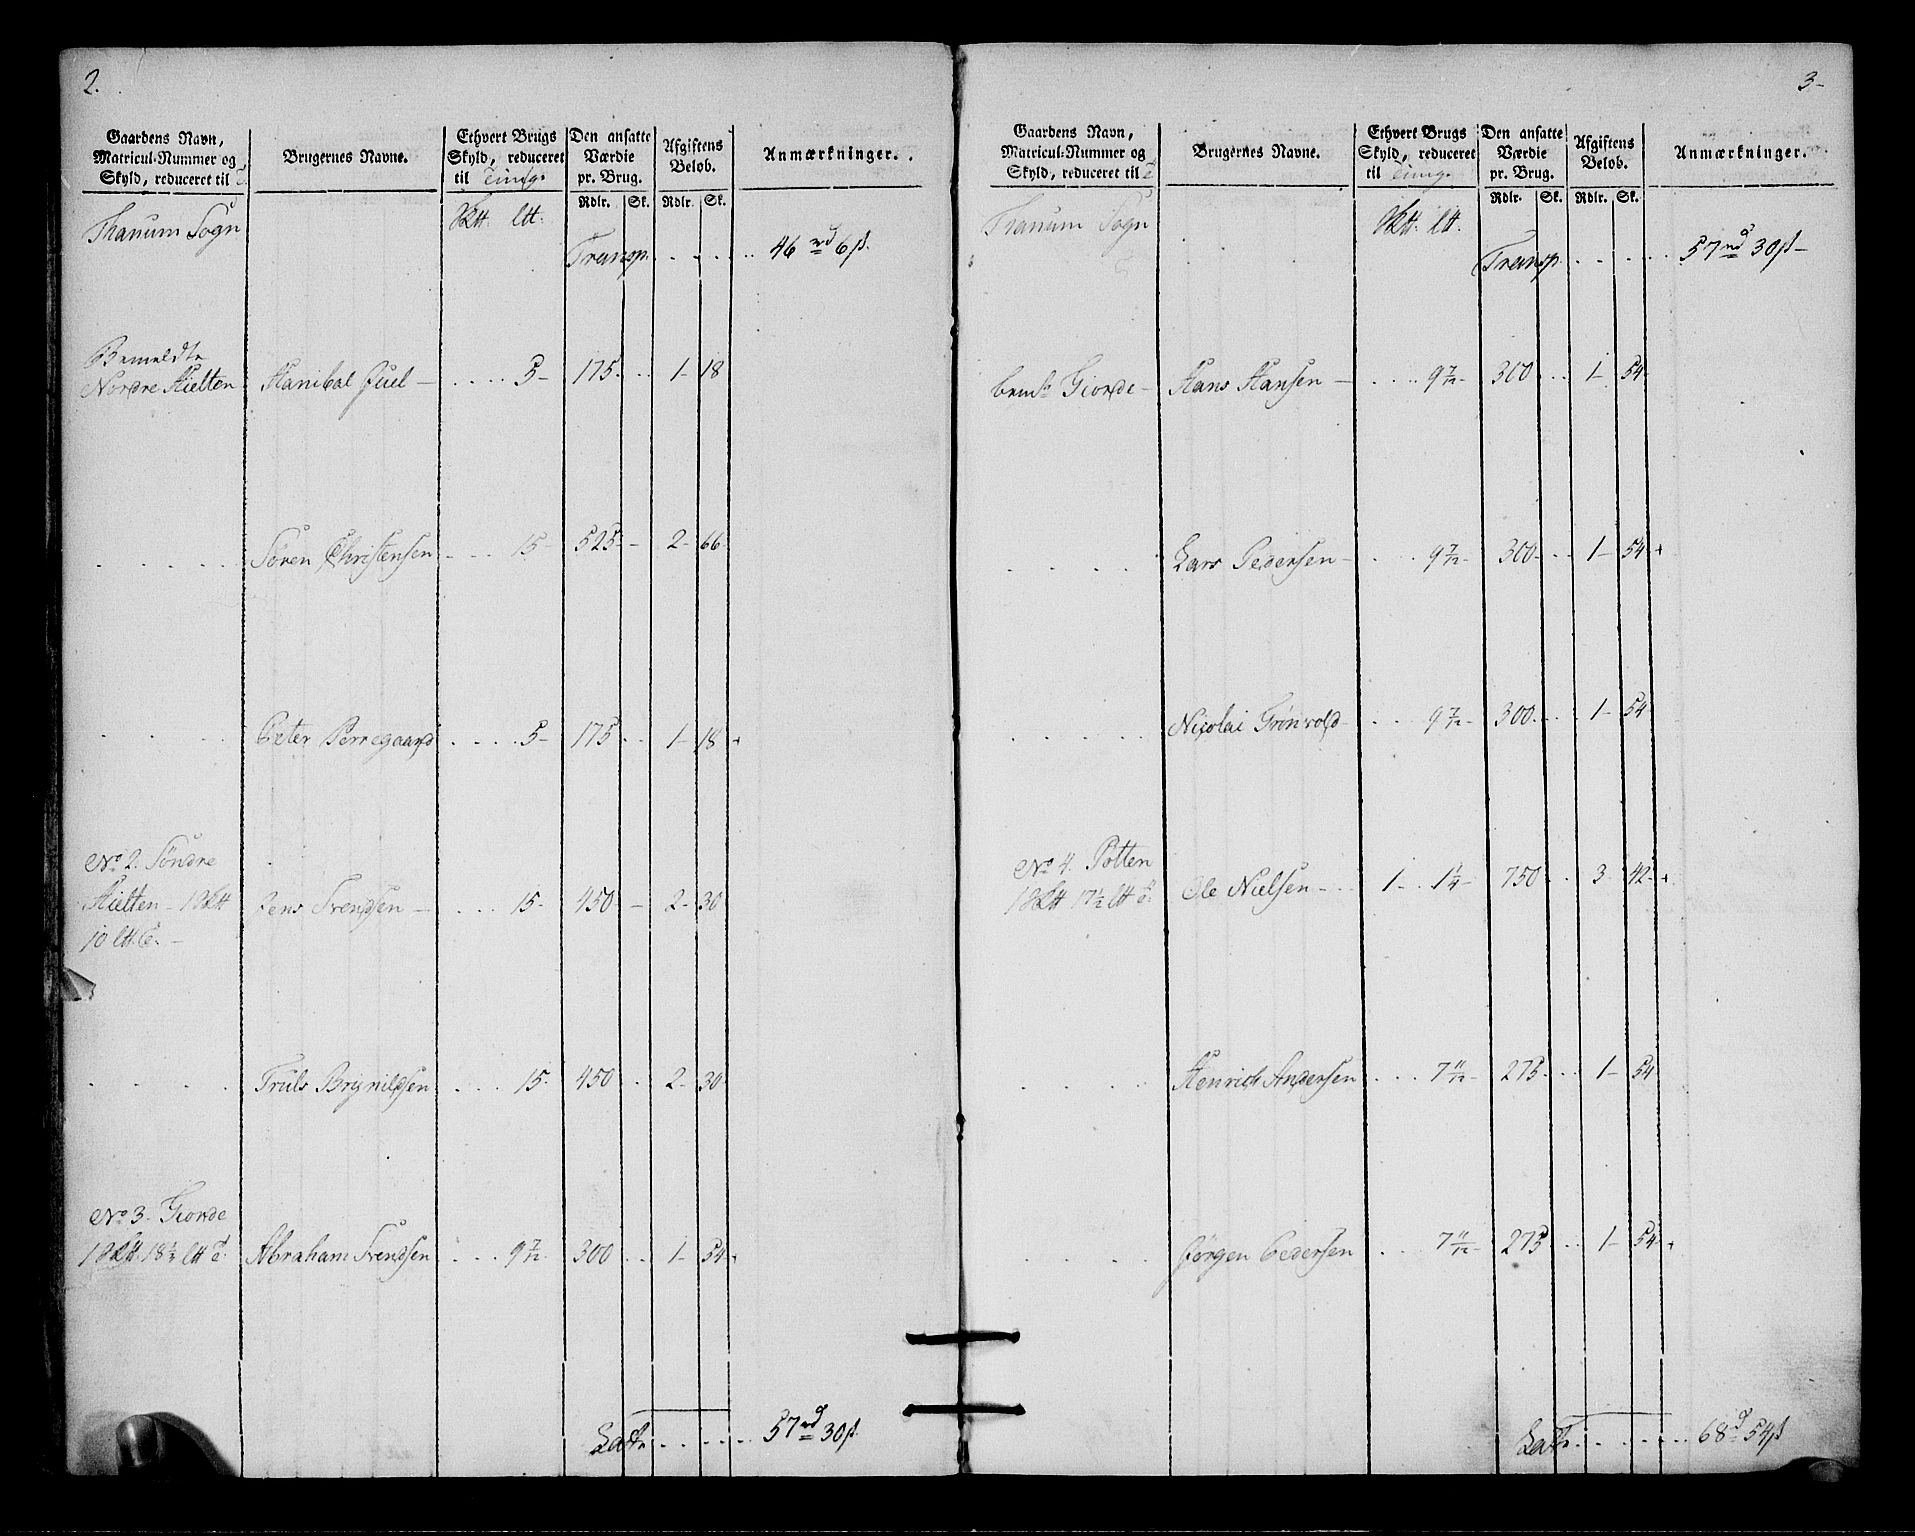 2.
Gaardens Navn, Matricul-Nummer og Skyld, reduceret til
Brugernes Navne.
Ethvert Brugs Skyld, reduceret til Tung.
Den ansatte Værdie pr. Brug.
Afgiftens Beløb.
Anmærkninger.
Rdlr. Sk. Rdlr. Sk.
Thanum Sogn
Transp. 46 rd 6 ß.
Bemeldte
Nordre Hielten Hanibal Juel — 5 - 175. 1 - 18
Søren Christensen 15 - 525 - 2 - 66
Peter Perregaard 5 - 175 1 - 18
No 2. Søndre
Hielten - 1
10
Jens Svendsen — 15 - 450 - 2 - 30
Truls Brynildsen 15 - 450 2 - 30
No 3. Gionde
1 18 1/2
Abraham Svendsen 9 7/12 - 300 1 - 54
Latr. 57 rd 30 ß.
3 -
Gaardens Navn, Matricul-Nummer og Skyld, reduceret til
Brugernes Navne.
Ethvert Brugs Skyld, reduceret til Tung.
Den ansatte Værdie pr. Brug.
Afgiftens Beløb.
Anmærkninger.
Rdlr. Sk. Rdlr. Sk.
Tranum Sogn
Transp. 57 rd 30 ß -
bem.te Gionde - Hans Hansen — 9 7/12 - 300 1 - 54
Lars Pedersen - 9 7/12 - 300 - 1 - 54 +
Nicolai Grønvold - 9 7/12 - 300 - 1 - 54
No 4. Potten
1 17 1/2
Ole Nielsen - 1 - 1 1/4 - 750 3 - 42 - +
Henrich Andersen 7 11/12 - 275 - 1 - 54
Jørgen Pedersen 7 11/12 - 275 1 - 54 +
Latr. 68 d 54 ß